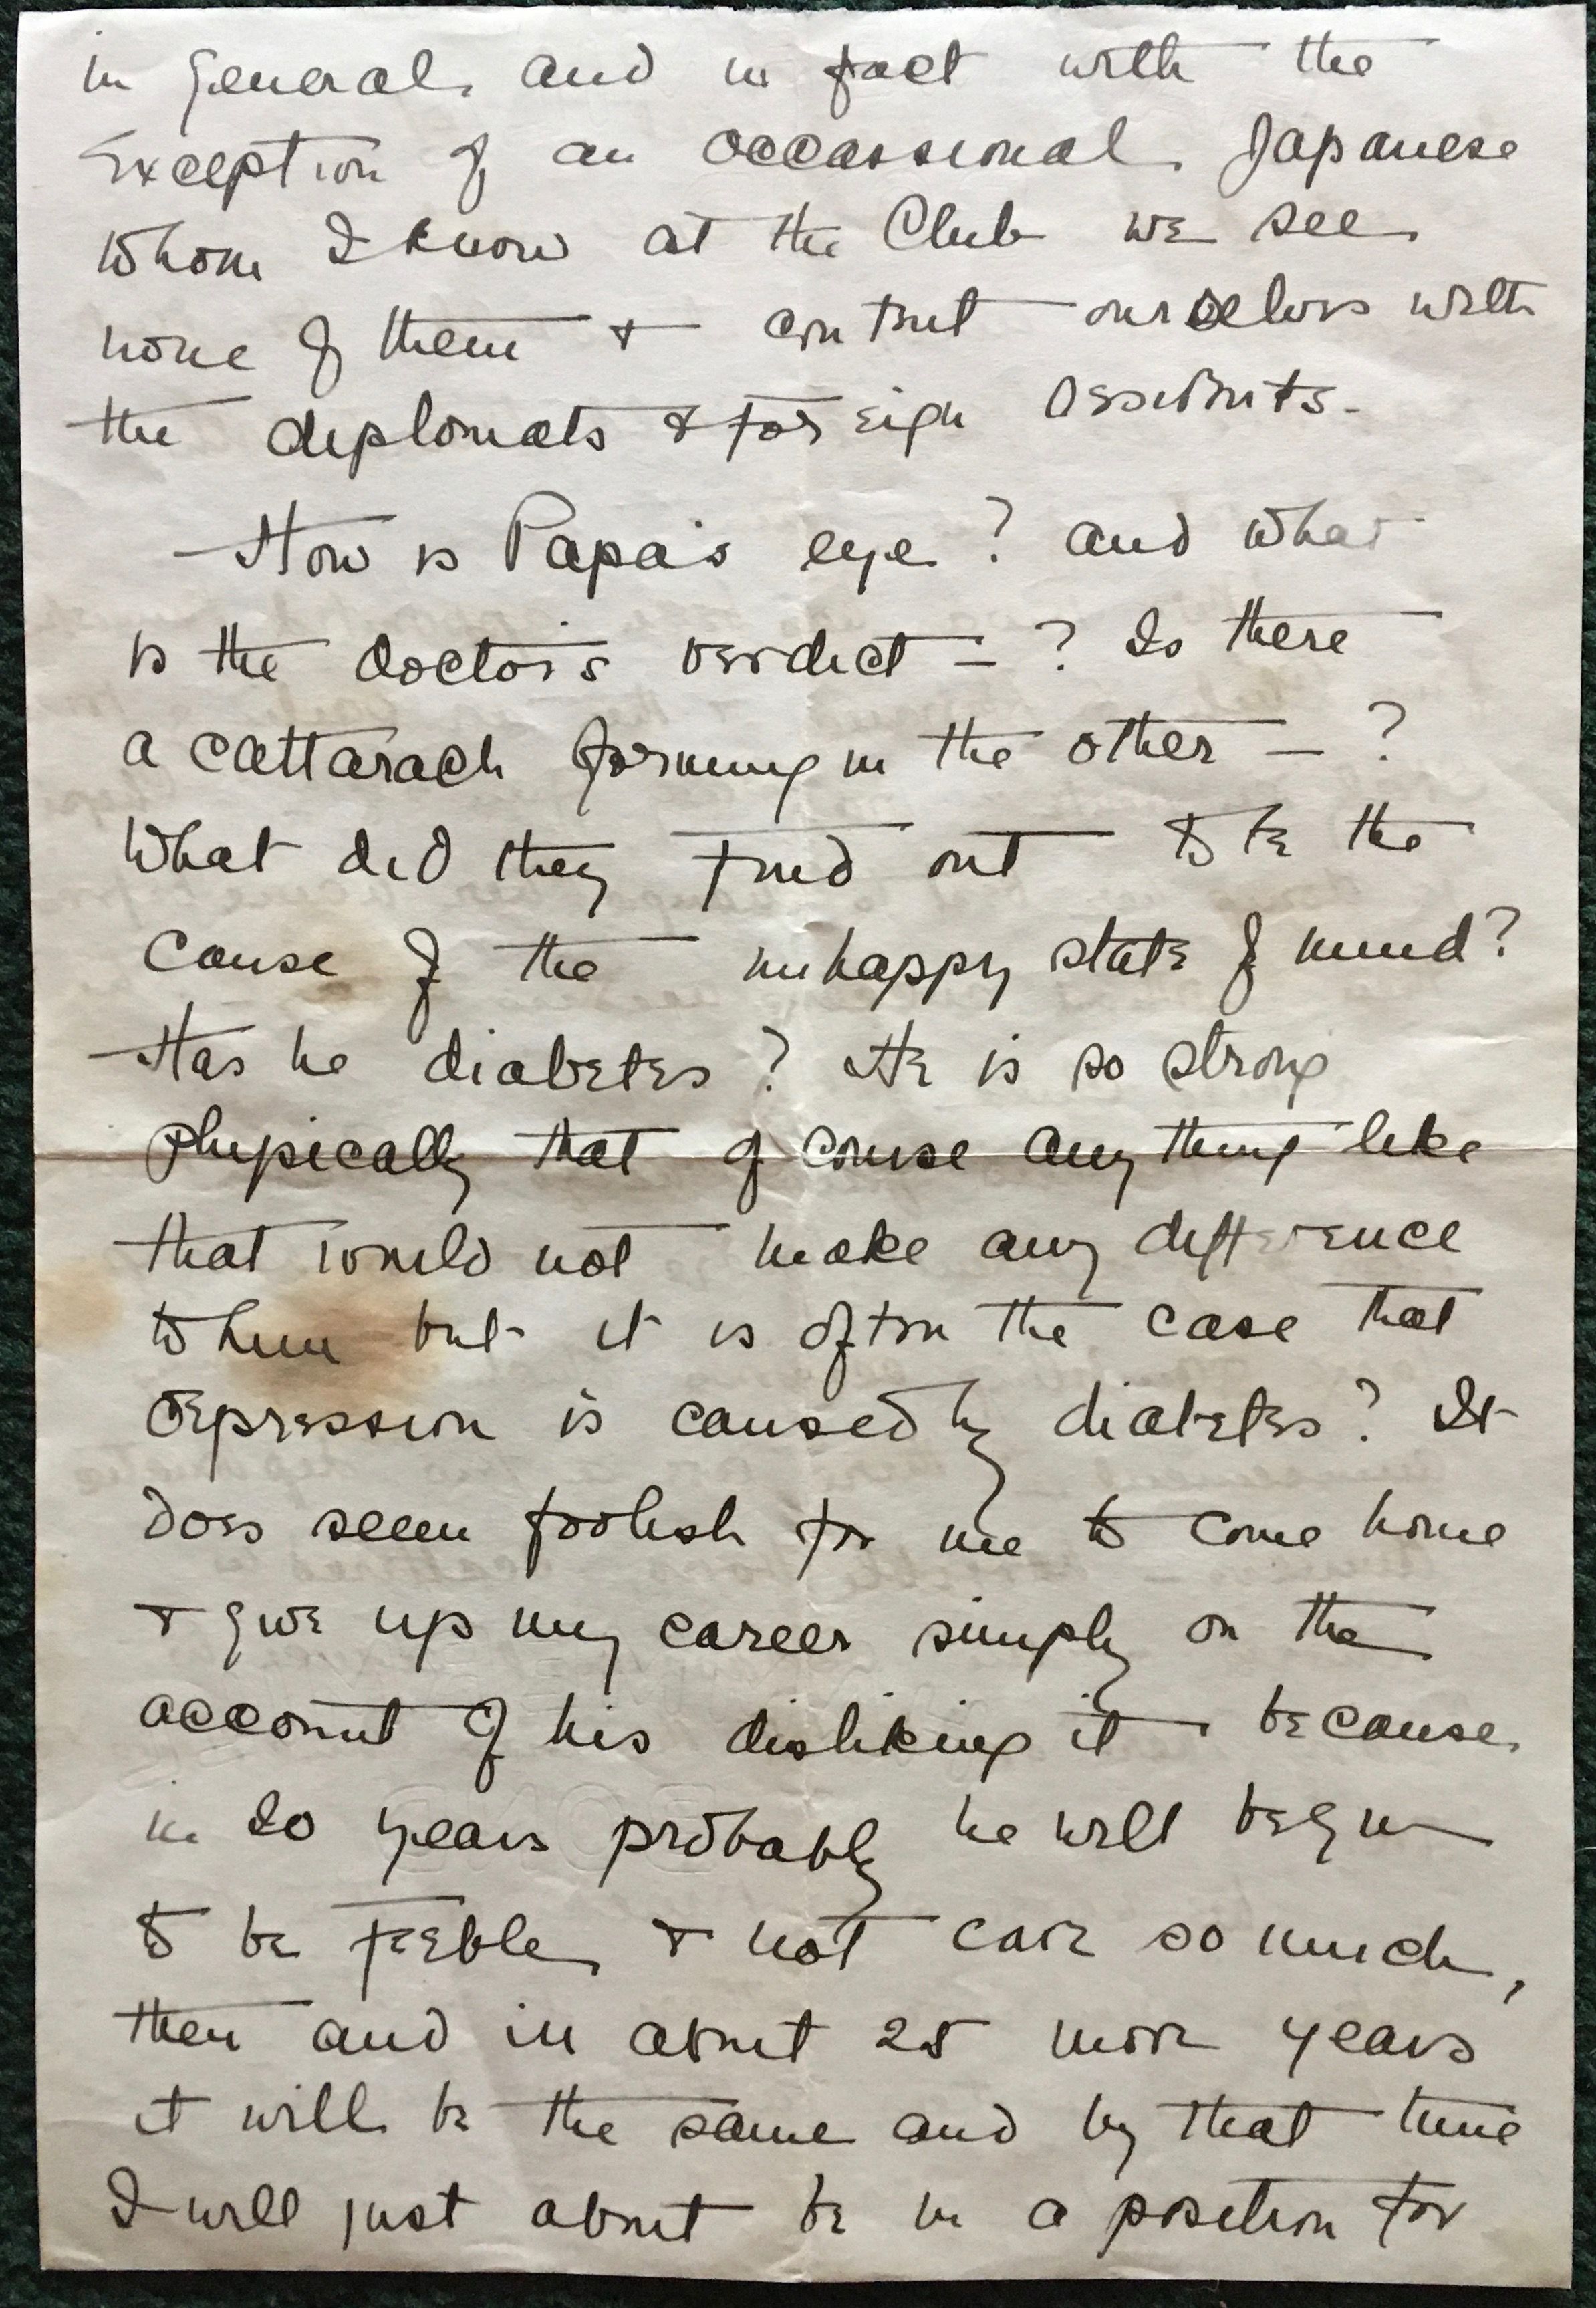 in general, and in fact with the
Exception of an occassional Japanese
whom I know at the Club we see
none of them & content ourselves with
the diplomats & foreign
How is Papa's eye? and what
is the doctor's verdict - ? Is there
a cattarach forming in the other - ?
What did they find out to be the
cause of the unhappy state of mind?
Has he diabetes? He is so strong
physically that of course anything like
that would not make any difference
to him but it is often the case that
depression is caused by diabetes? It
does seem foolish for me to come home
& give up my career simply on the
account of his disliking it because
in 20 years probably he will begin
to be feeble & not care so much,
then and in about 25 more years
it will be the same and by that time
I will just about be in a position for